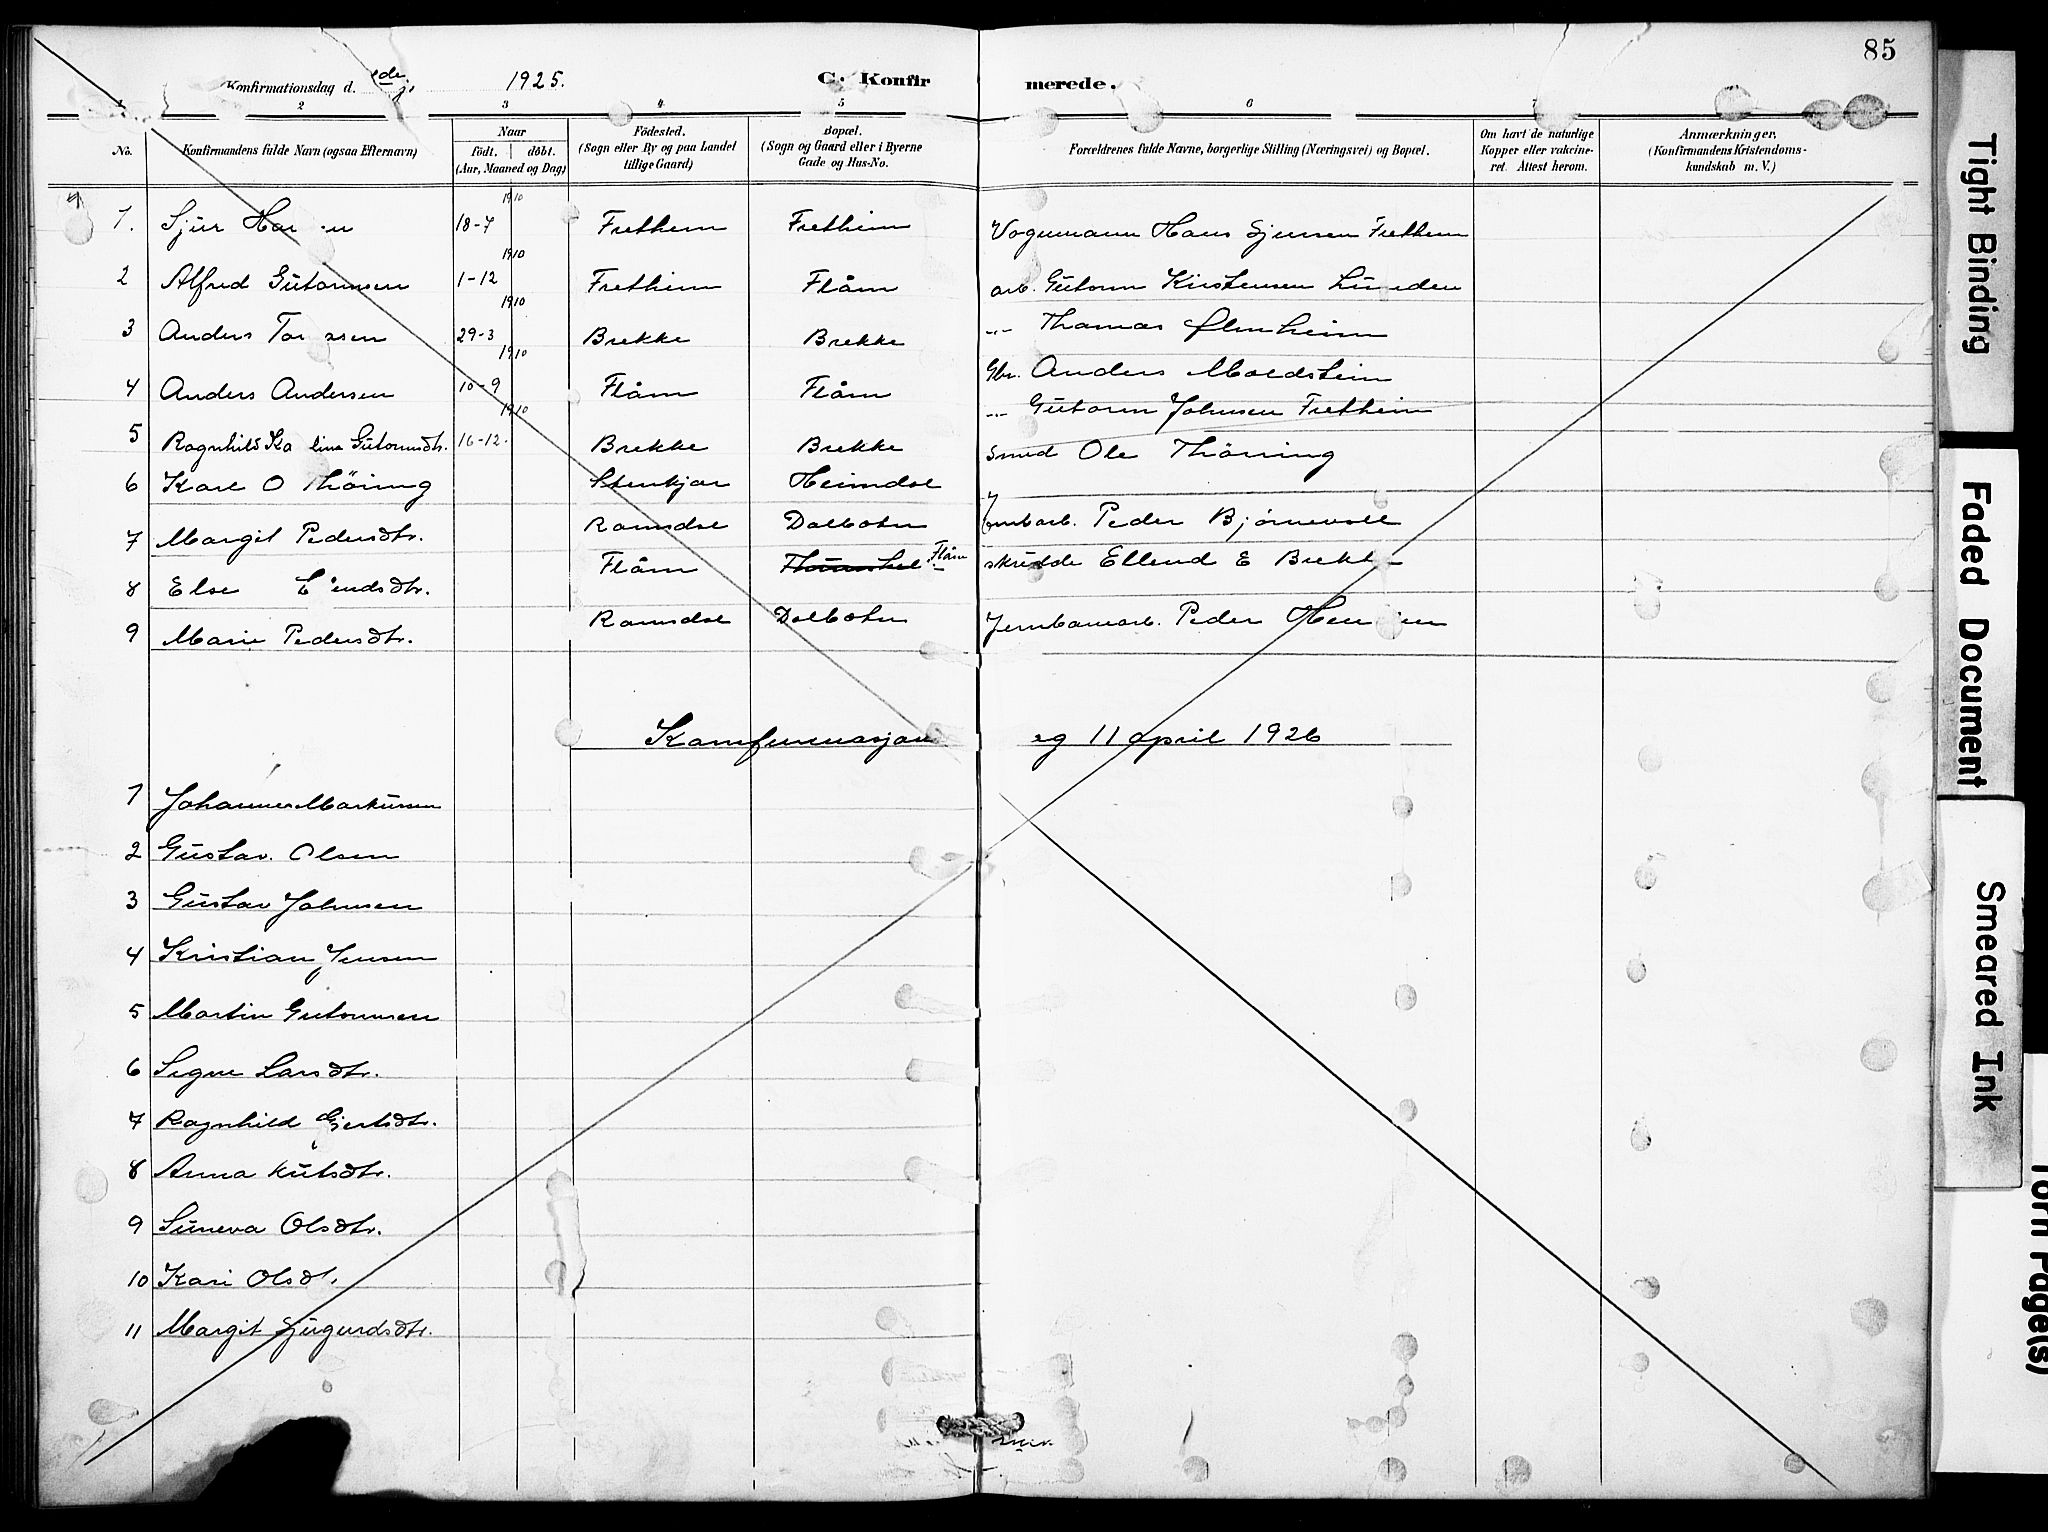 85
Konfirmationsdag d. 1925. C. Konfir merede.
2 3 4 5 6
No. Konfirmandens fulde Navn (ogsaa Efternavn) Naar født. døbt. (Aar, Maaned og Dag) Fødested. (Sogn eller By og paa Landet tillige Gaard) Bopæl. (Sogn og Gaard eller i Byerne Gade og Hus-No. Forældrenes fulde Navne, borgerlige Stilling (Næringsvei) og Bopæl. Om havt de naturlige Kopper eller vakcineret. Attest herom. Anmærkninger. (Konfirmandens Kristendomskundskab m. V.)
1. Sjur 1910 18-7 Frethem Frethiem Hans Sjursen Frethem
2 Alfred Gutormsen 1910 1-12 Frethiem Flåm arb. Gutorm Kirstensen Lunden
3 Anders 1910 29-3 Brekke Brekke -"- Thomas
4 Anders Andersen 1910 10-9 Flåm Flåm Gbr. Anders Moldstein
5 Ragnhild Gutormsdtr. 1910 16-12. Brekke Brekke -"- Gutorm Johnsen Frethiem
6 Kare O Thöring Stenkjær Heimdal Smed Ole Thöring
7 Margit Pedersdtr. Romsdal Dalbotn Peder Bjørnevoll
8 Else Flåm Flåm Ellend E
9 Marie Pedersdtr. Romsdal Dalbotn Jernbanearb. Peder
11 april 1926
1 Johannes Markussen
2 Gustav. Olsen
3 Gustav Johnsen
4 Kristian Jensen
5 Martin Gutormsen
6 Signe Larsdtr.
7 Ragnhild Gjertsdtr.
8 Anna
9 Suneva Olsdtr.
10 Kari Olsdt.
11 Margit
Tight Binding
Faded Document
Smeared Ink
Torn Page(s)